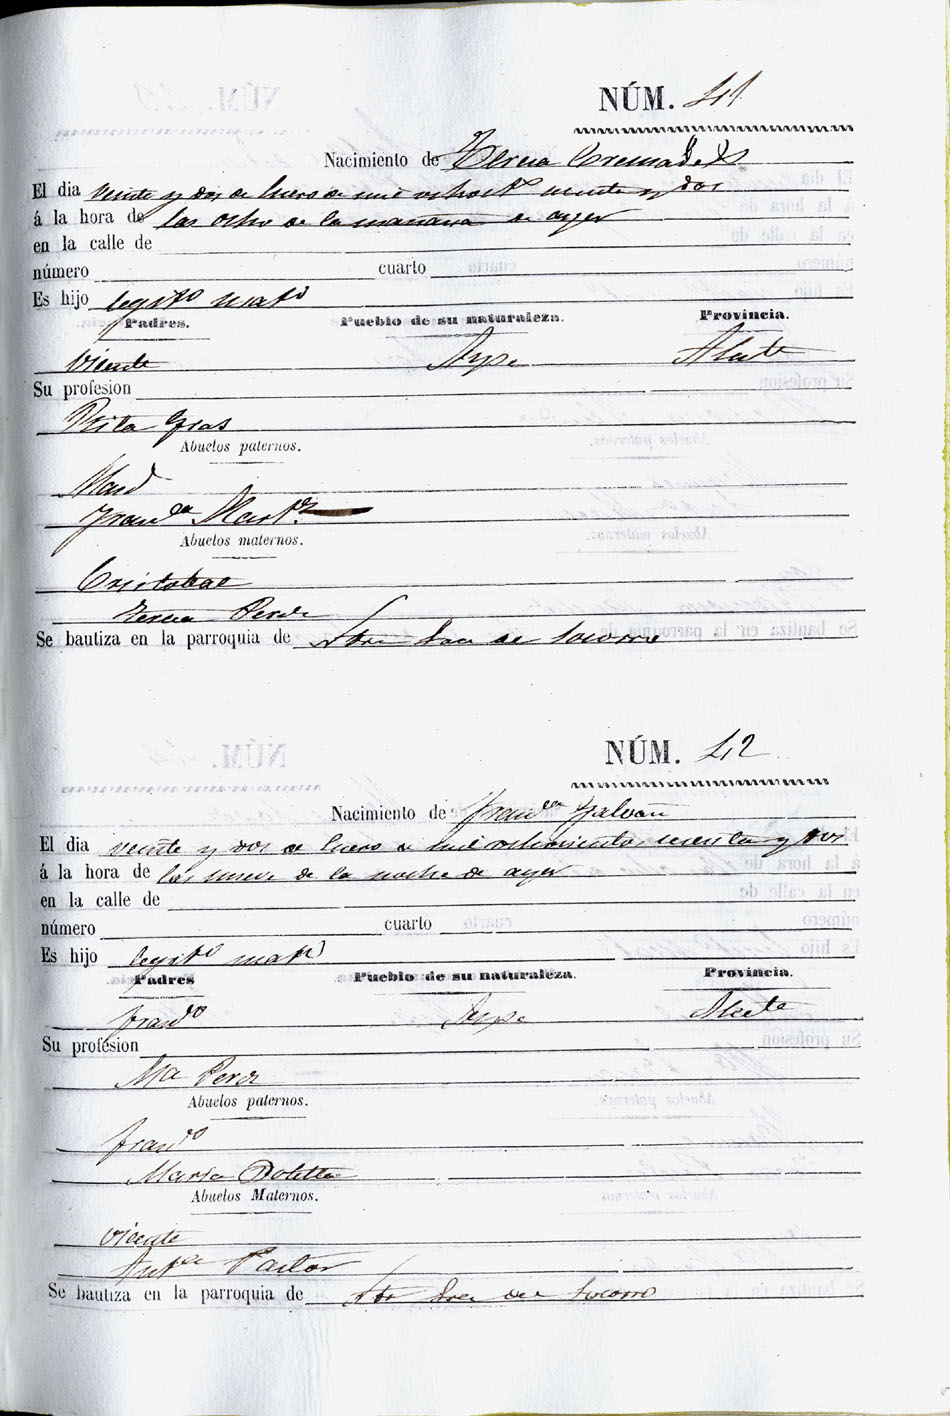 NÚM. 41
Nacimiento de Teresa Cremades
El dia veinte y dos de Enero de mil ochoct.s sesenta y dos
á la hora de las ocho de la mañana de ayer
en la calle de
número cuarto
Es hijo legit.o mat.o
Padres. Pueblo de su naturaleza. Provincia.
Vicente Aspe Alcte
Su profesion
Rita Gras
Abuelos paternos.
Man.l
Fran.ca Mart.z
Abuelos maternos.
Cristobal
Teresa Perez
Se bautiza en la parroquia de Ntra Sra de Socorro
NÚM. 42
Nacimiento de Fran.ca Galvañ
El dia veinte y dos de Enero de mil ochocientos sesenta y dos
á la hora de las nueve de la noche de ayer
en la calle de
número cuarto
Es hijo legit.o mat.o
Padres Pueblo de su naturaleza. Provincia.
Fran.co Aspe Alcte
Su profesion
M.a Perez
Abuelos paternos.
Fran.co
Maria Botella
Abuelos Maternos.
Vicente
Ant.a Pastor
Se bautiza en la parroquia de Ntr Sra del Socorro